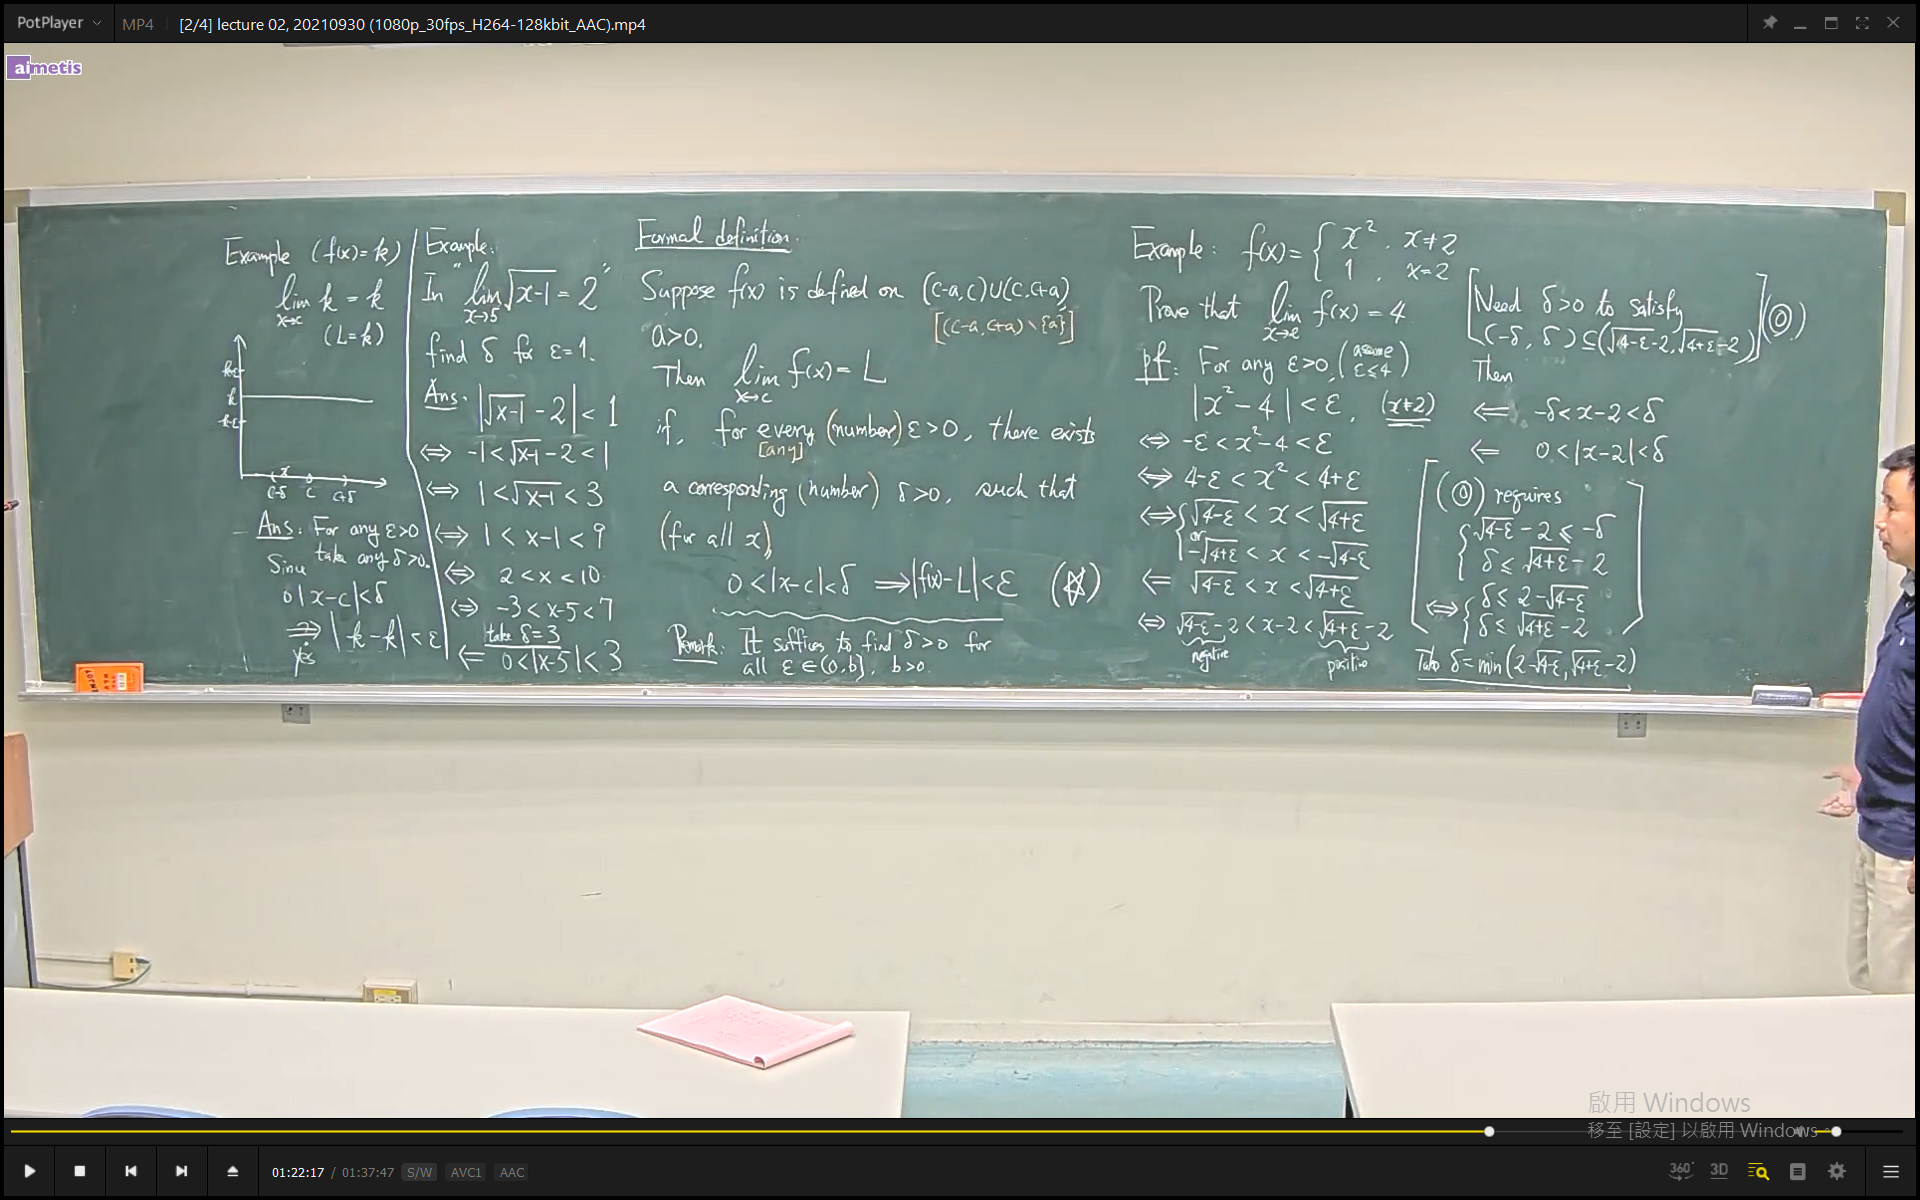 PotPlayer
MP4
[2/4] lecture 02, 20210930 (1080p_30fps_H264-128kbit_AAC).mp4
aimetis
Example (f(x)=k)
lim k = k
x→c
(L=k)
k+ε
k
k-ε
x
c-δ c c+δ
Ans: For any ε>0
take any δ>0.
Since
0|x-c|<δ
⇒ |k-k|<ε
yes
Example:
In "lim √(x-1) = 2"
x→5
find δ for ε=1.
Ans. |√(x-1) - 2| < 1
⇔ -1<√(x-1) - 2 < 1
⇔ 1 < √(x-1) < 3
⇔ 1 < x-1 < 9
⇔ 2 < x < 10.
⇔ -3 < x-5 < 7
take δ=3
⇐ 0<|x-5| < 3
Formal definition.
Suppose f(x) is defined on (c-a,c)∪(c,c+a)
[(c-a,c+a)∖{a}]
a>0.
Then lim f(x) = L
x→c
if, for every (number) ε>0, there exists
[any]
a corresponding (number) δ>0, such that
(for all x),
0<|x-c|<δ ⇒ |f(x)-L|<ε (☆)
Remark: It suffices to find δ>0 for
all ε∈(0,b], b>0.
Example: f(x) = { x², x≠2
1, x=2
Prove that lim f(x) = 4
x→2
pf: For any ε>0, (assume ε≤4)
|x²-4| < ε, (x≠2)
⇔ -ε < x²-4 < ε
⇔ 4-ε < x² < 4+ε
⇔ { √(4-ε) < x < √(4+ε)
or
-√(4+ε) < x < -√(4-ε)
⇐ √(4-ε) < x < √(4+ε)
⇔ √(4-ε)-2 < x-2 < √(4+ε)-2
negative positive
[Need δ>0 to satisfy
(-δ, δ) ⊆ (√(4-ε)-2, √(4+ε)-2)] (◎)
Then
⇐ -δ<x-2<δ
⇐ 0<|x-2|<δ
[(◎) requires
{ √(4-ε) - 2 ≤ -δ
δ ≤ √(4+ε) - 2
⇔ { δ ≤ 2-√(4-ε)
δ ≤ √(4+ε) - 2 ]
Take δ = min(2-√(4-ε), √(4+ε)-2)
啟用 Windows
移至 [設定] 以啟用 Windows。
01:22:17 / 01:37:47 S/W AVC1 AAC
360° 3D